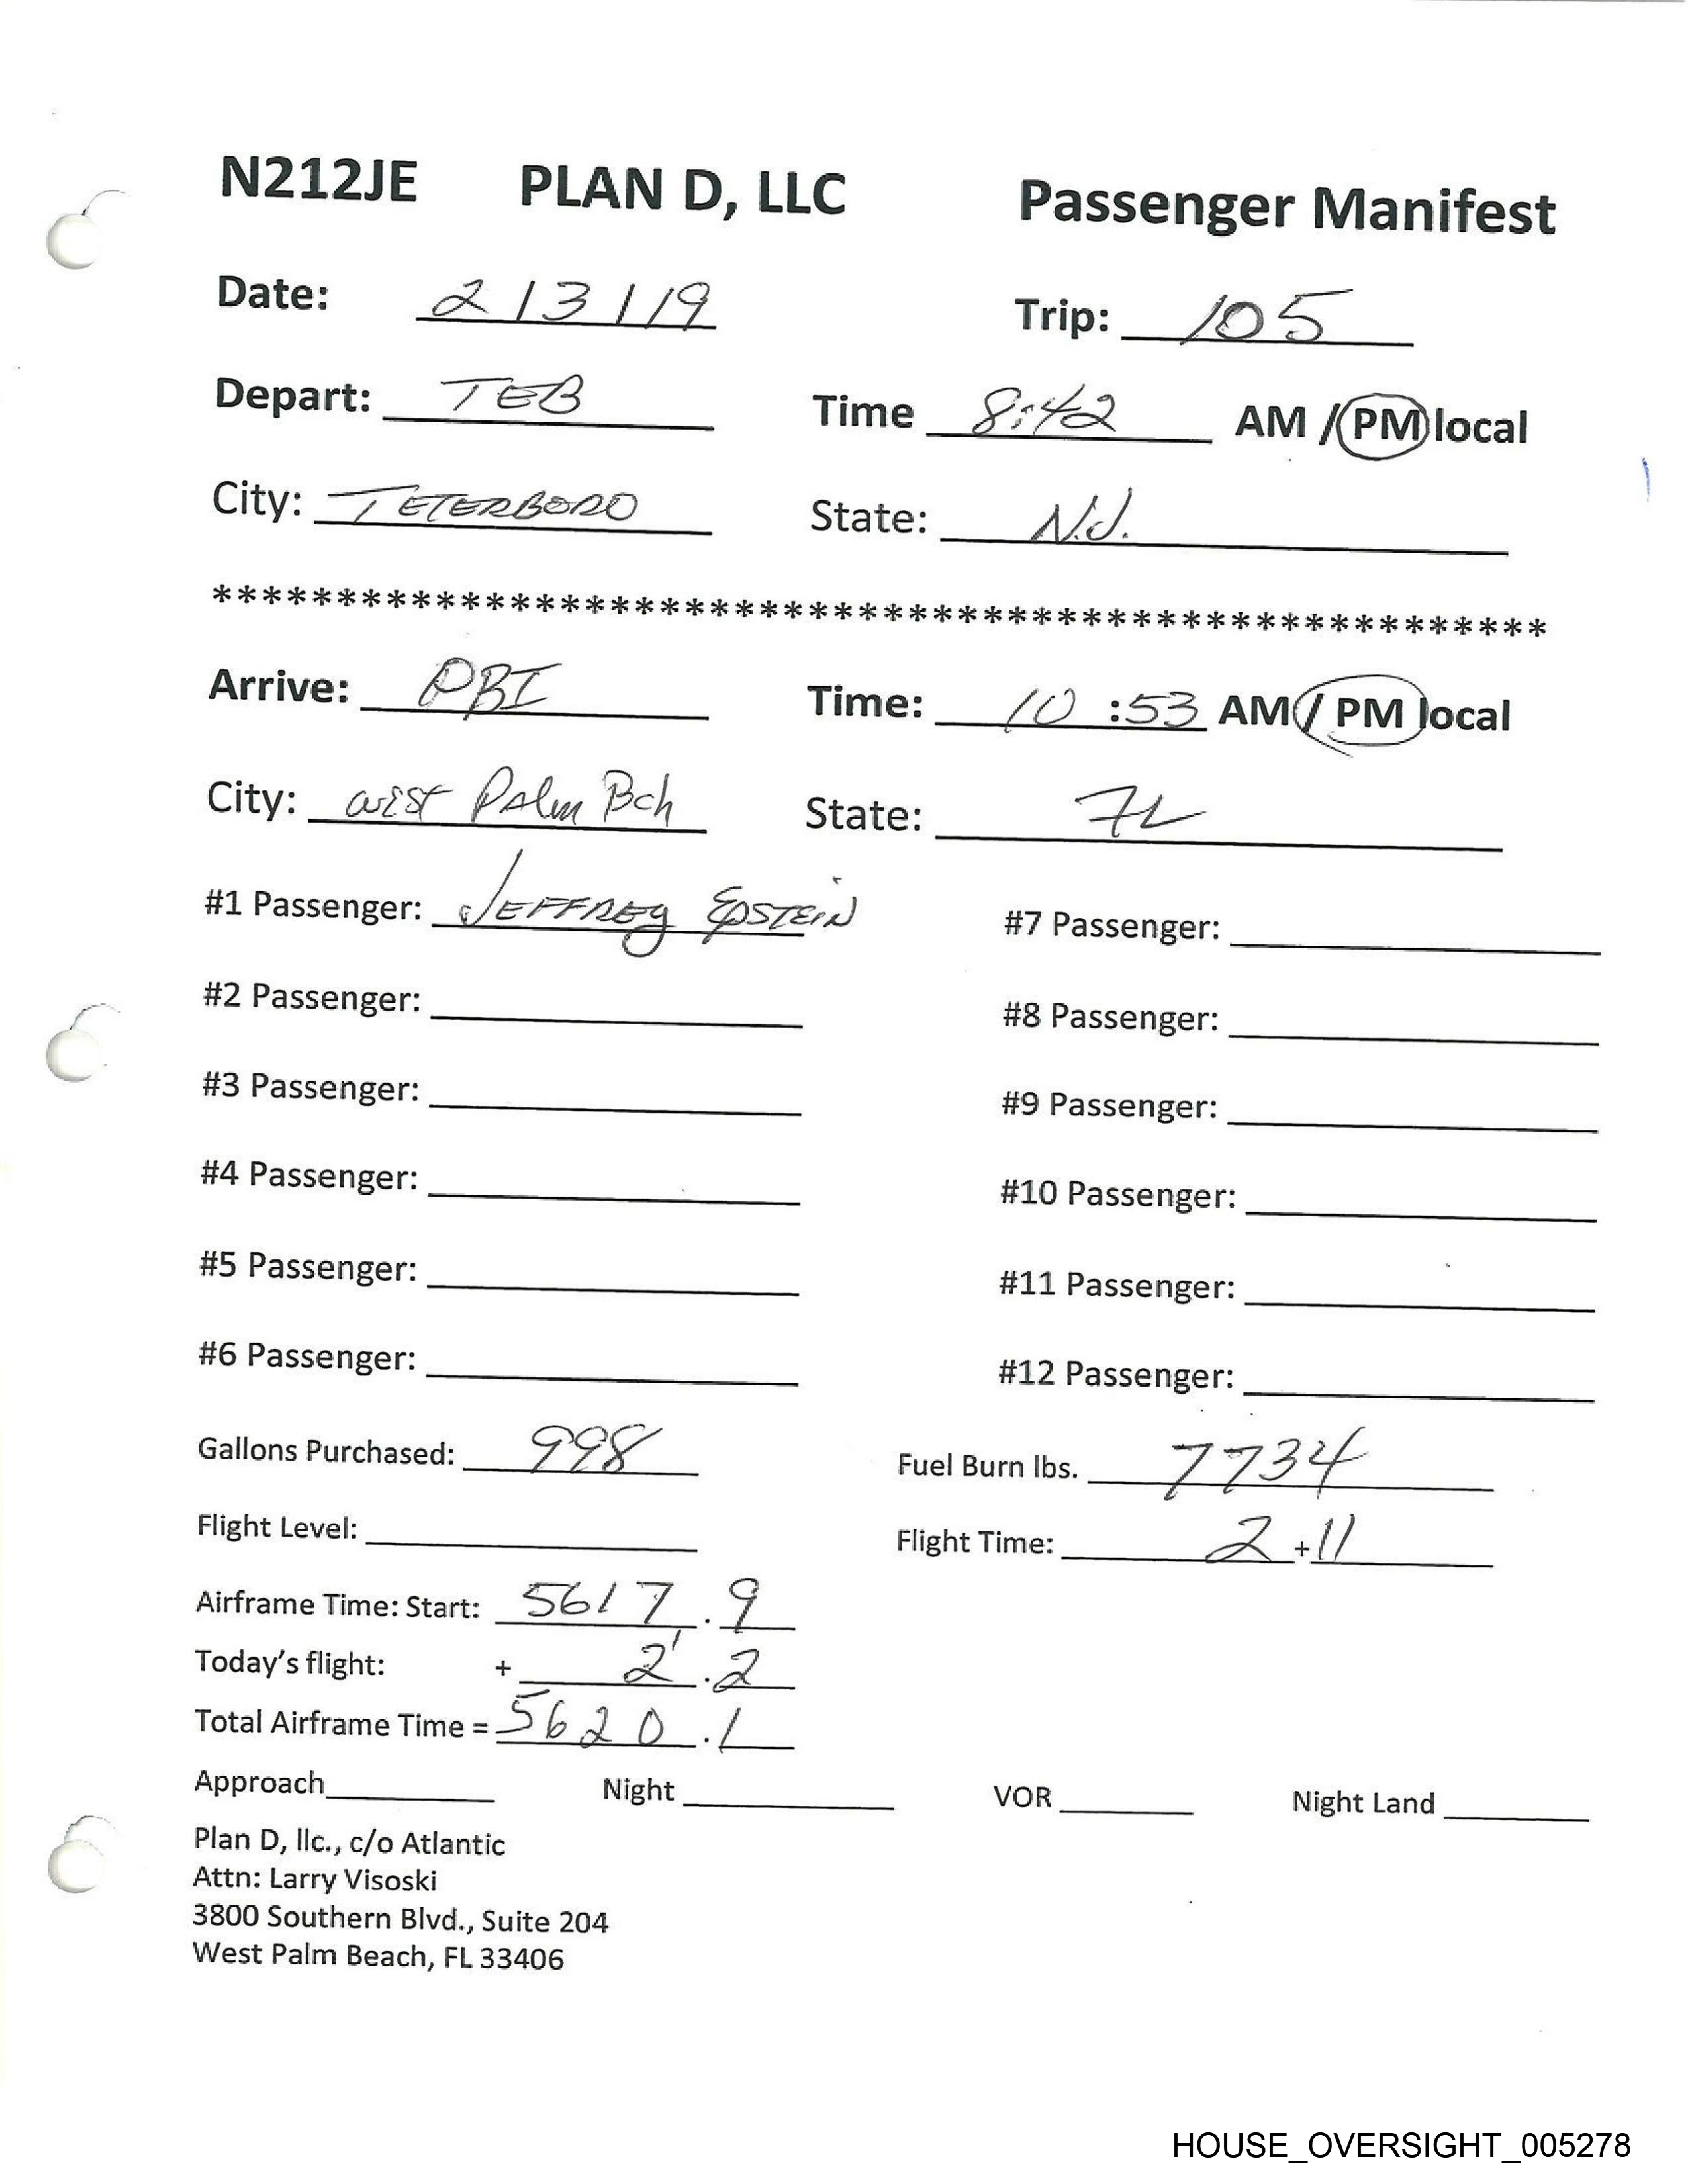 N212JE PLAN D, LLC Passenger Manifest
Date: 2/3/19 Trip: 105
Depart: TEB Time 8:42 AM / PM local
City: TETERBORO State: N.J.
******************************************************
Arrive: PBI Time: 10:53 AM / PM local
City: West Palm Bch State: FL
#1 Passenger: JEFFREY EPSTEIN #7 Passenger:
#2 Passenger: #8 Passenger:
#3 Passenger: #9 Passenger:
#4 Passenger: #10 Passenger:
#5 Passenger: #11 Passenger:
#6 Passenger: #12 Passenger:
Gallons Purchased: 998 Fuel Burn lbs. 7734
Flight Level: Flight Time: 2+11
Airframe Time: Start: 5617.9
Today's flight: + 2.2
Total Airframe Time = 5620.1
Approach Night VOR Night Land
Plan D, llc., c/o Atlantic
Attn: Larry Visoski
3800 Southern Blvd., Suite 204
West Palm Beach, FL 33406
HOUSE_OVERSIGHT_005278